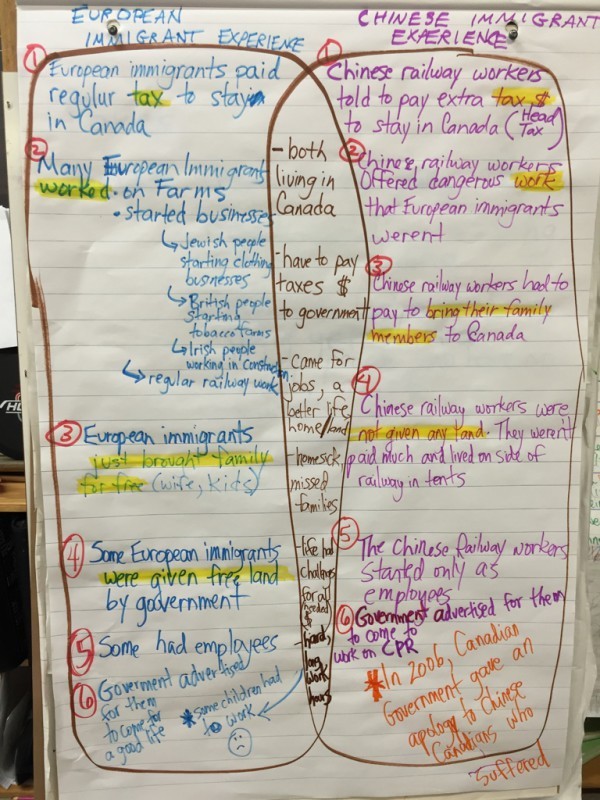 EUROPEAN
IMMIGRANT EXPERIENCE
① European immigrants paid
regular tax to stay
in Canada
② Many European Immigrants
worked • on Farms
• started businesses
↳ Jewish people
starting clothing
businesses
↳ British people
starting
tobacco farms
↳ Irish people
working in construction
↳ regular railway work
③ European immigrants
just brought family
for free (wife, kids)
④ Some European immigrants
were given free land
by government
⑤ Some had employees
⑥ Government advertised
for them
to come for
a good life
* some children had
to work
- both
living in
Canada
- have to pay
taxes $
to government
- came for
jobs, a
better life,
home/land
- homesick,
missed
families
- like had
challenges
for all
needed
$
- hard,
long
work
hours
CHINESE IMMIGRANT
EXPERIENCE
① Chinese railway workers
told to pay extra tax $
to stay in Canada (Head
Tax)
② Chinese railway workers
Offered dangerous work
that European immigrants
werent
③ Chinese railway workers had to
pay to bring their family
members to Canada
④ Chinese railway workers were
not given any land. They weren't
paid much and lived on side of
railway in tents
⑤ The Chinese Railway workers
started only as
employees
⑥ Government advertised for them
to come to
work on CPR
* In 2006, Canadian
Government gave an
apology to Chinese
Canadians who
suffered